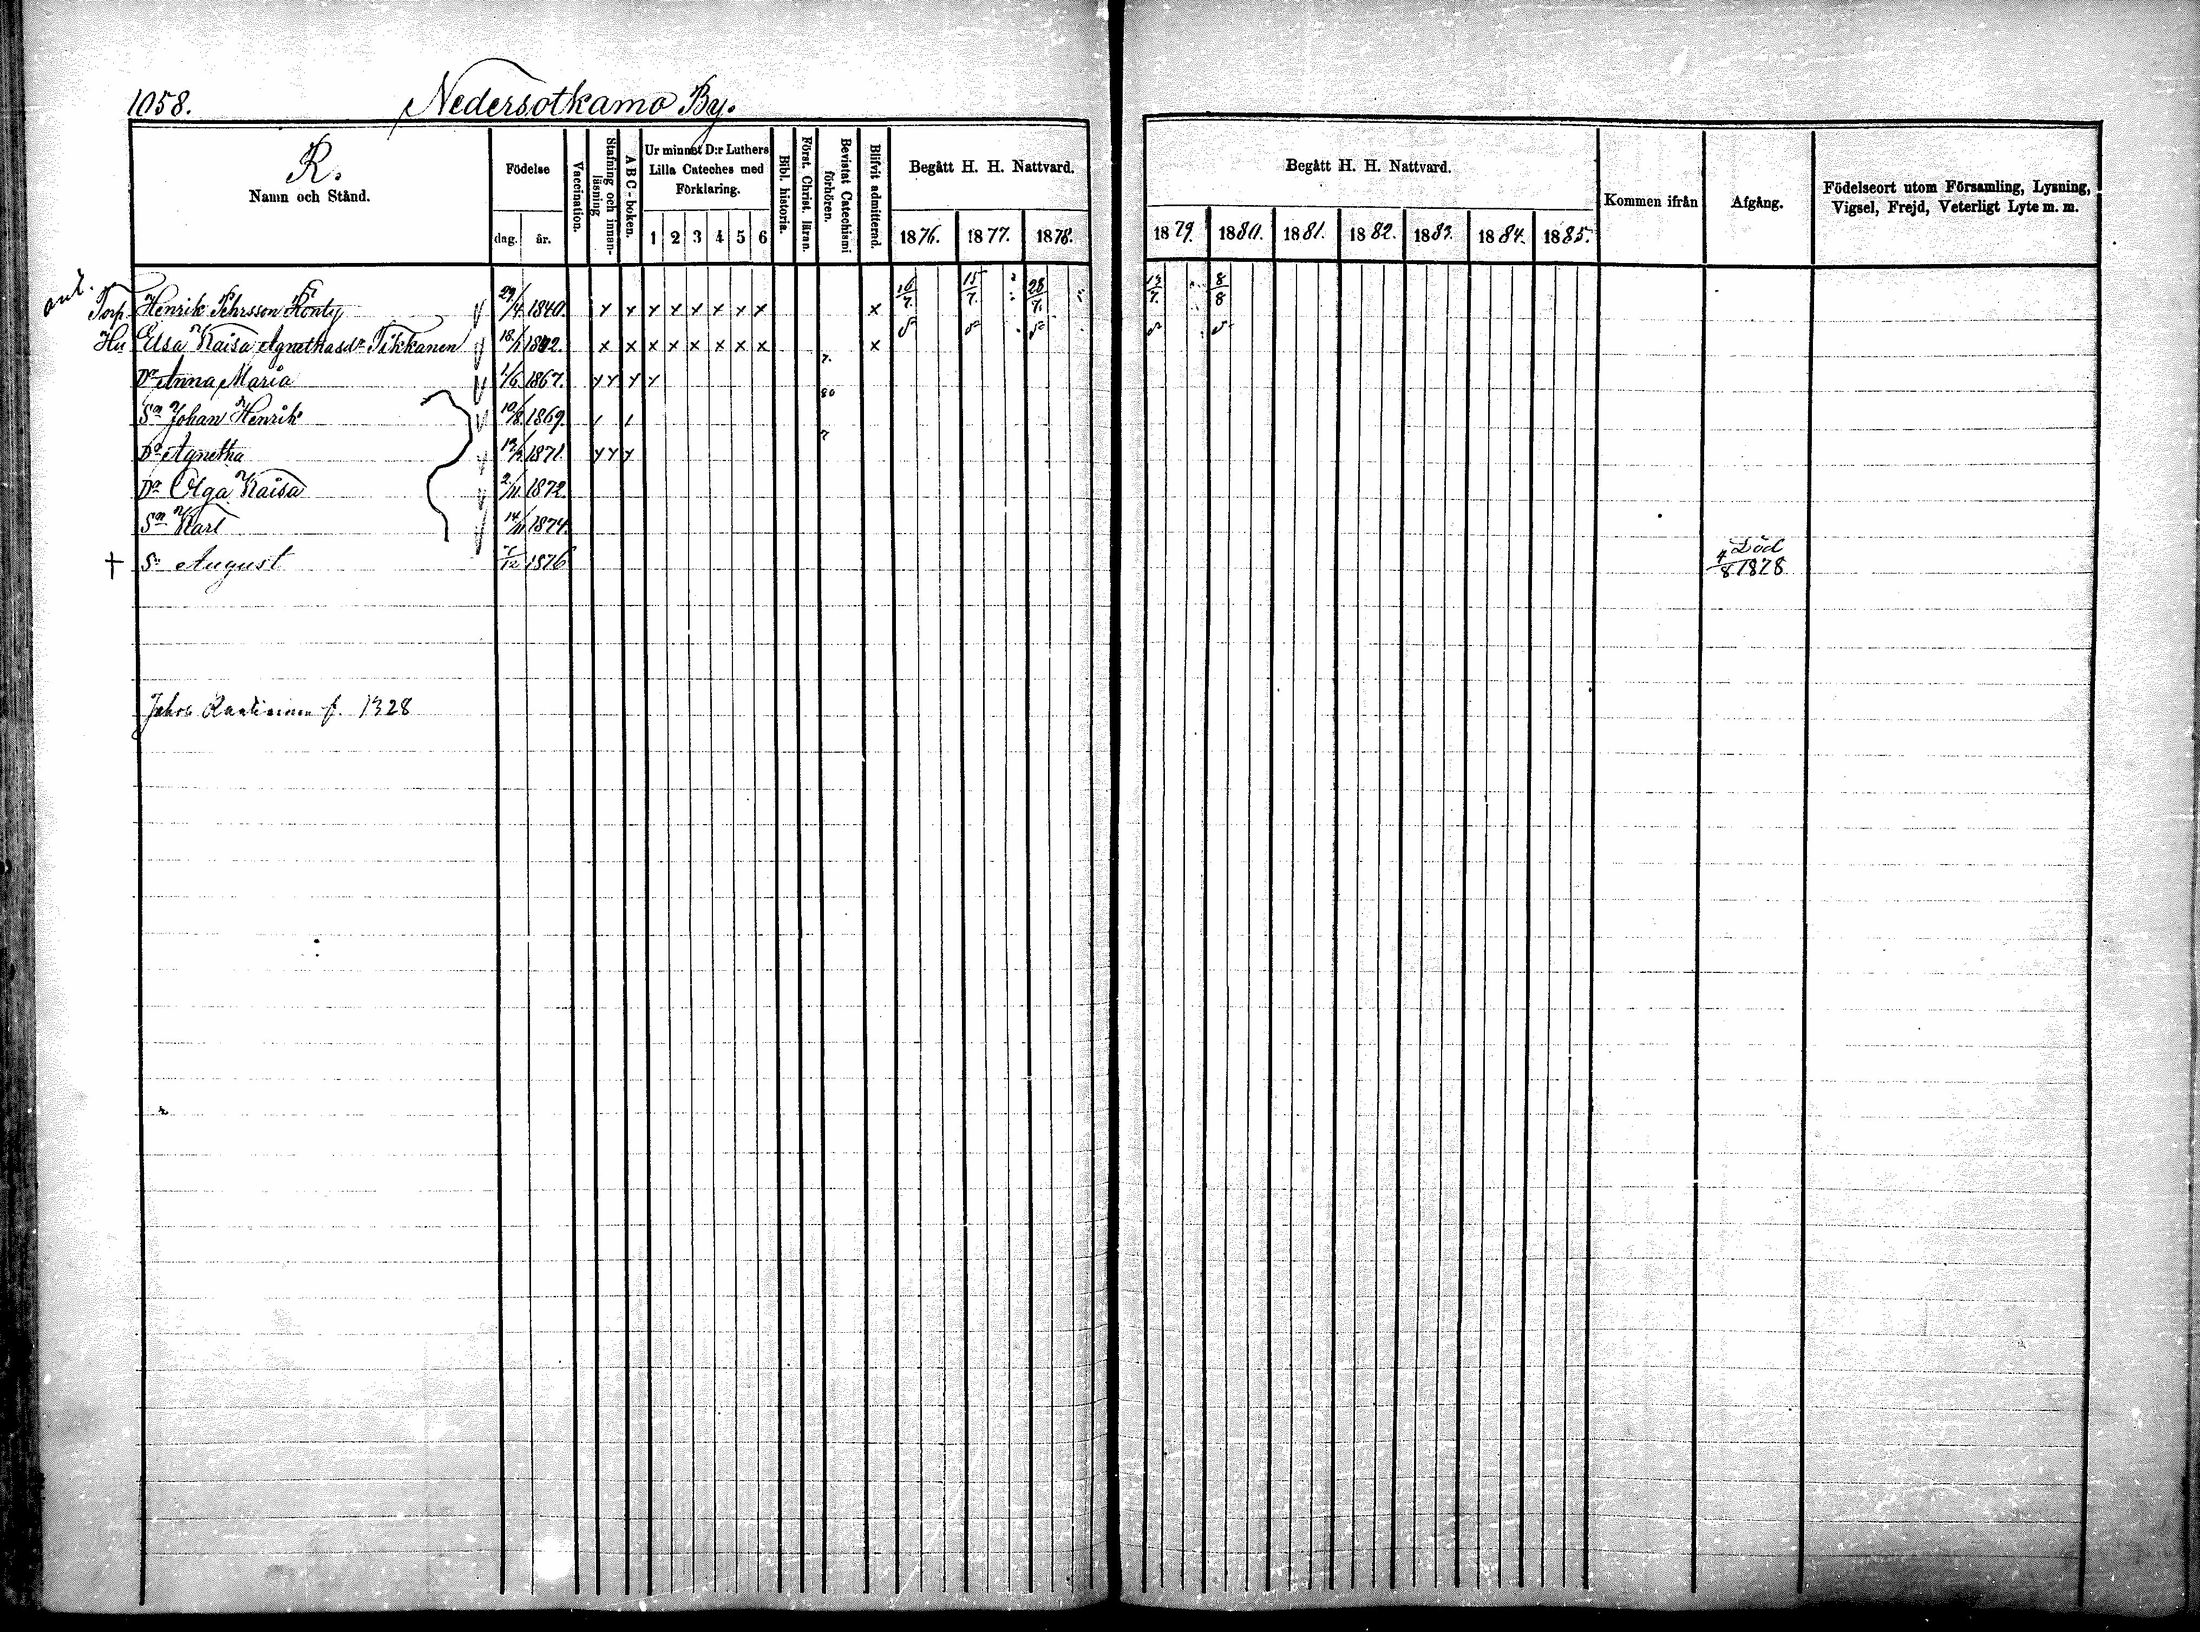 1058. Nedersotkamo By.
R.
Namn och Stånd.
Födelse
dag. år.
Vaccination.
Stafning och innan-
läsning
ABC-boken.
Ur minnet D:r Luthers
Lilla Cateches med
Förklaring.
1 2 3 4 5 6
Bibl. historia.
Först. Christ. läran.
Bevistat Catechismi
förhören.
Blifvit admitterad.
Begått H. H. Nattvard.
1876. 1877. 1878.
Begått H. H. Nattvard.
1879. 1880. 1881. 1882. 1883. 1884. 1885.
Kommen ifrån
Afgång.
Födelseort utom Församling, Lysning,
Vigsel, Frejd, Veterligt Lyte m. m.
Torp. Henrik Pehrsson 29/4 1840. x x x x x x x x x 16/7. 15/7. 28/7. 13/7. 8/8
Hu Elsa Kaisa Agnethasdr Tikkanen 18/1 1842. x x x x x x x x x
Dr Anna Maria 1/6 1867. x x x x 7.
Sn Johan Henrik 10/8 1869. 80
Dr Agnetha 1871. x x x 7
Dr Olga Kaisa 2/11 1872.
Sn Karl 14/11 1874.
† S. August /12 1876 Död
4/8 1878
f. 1328